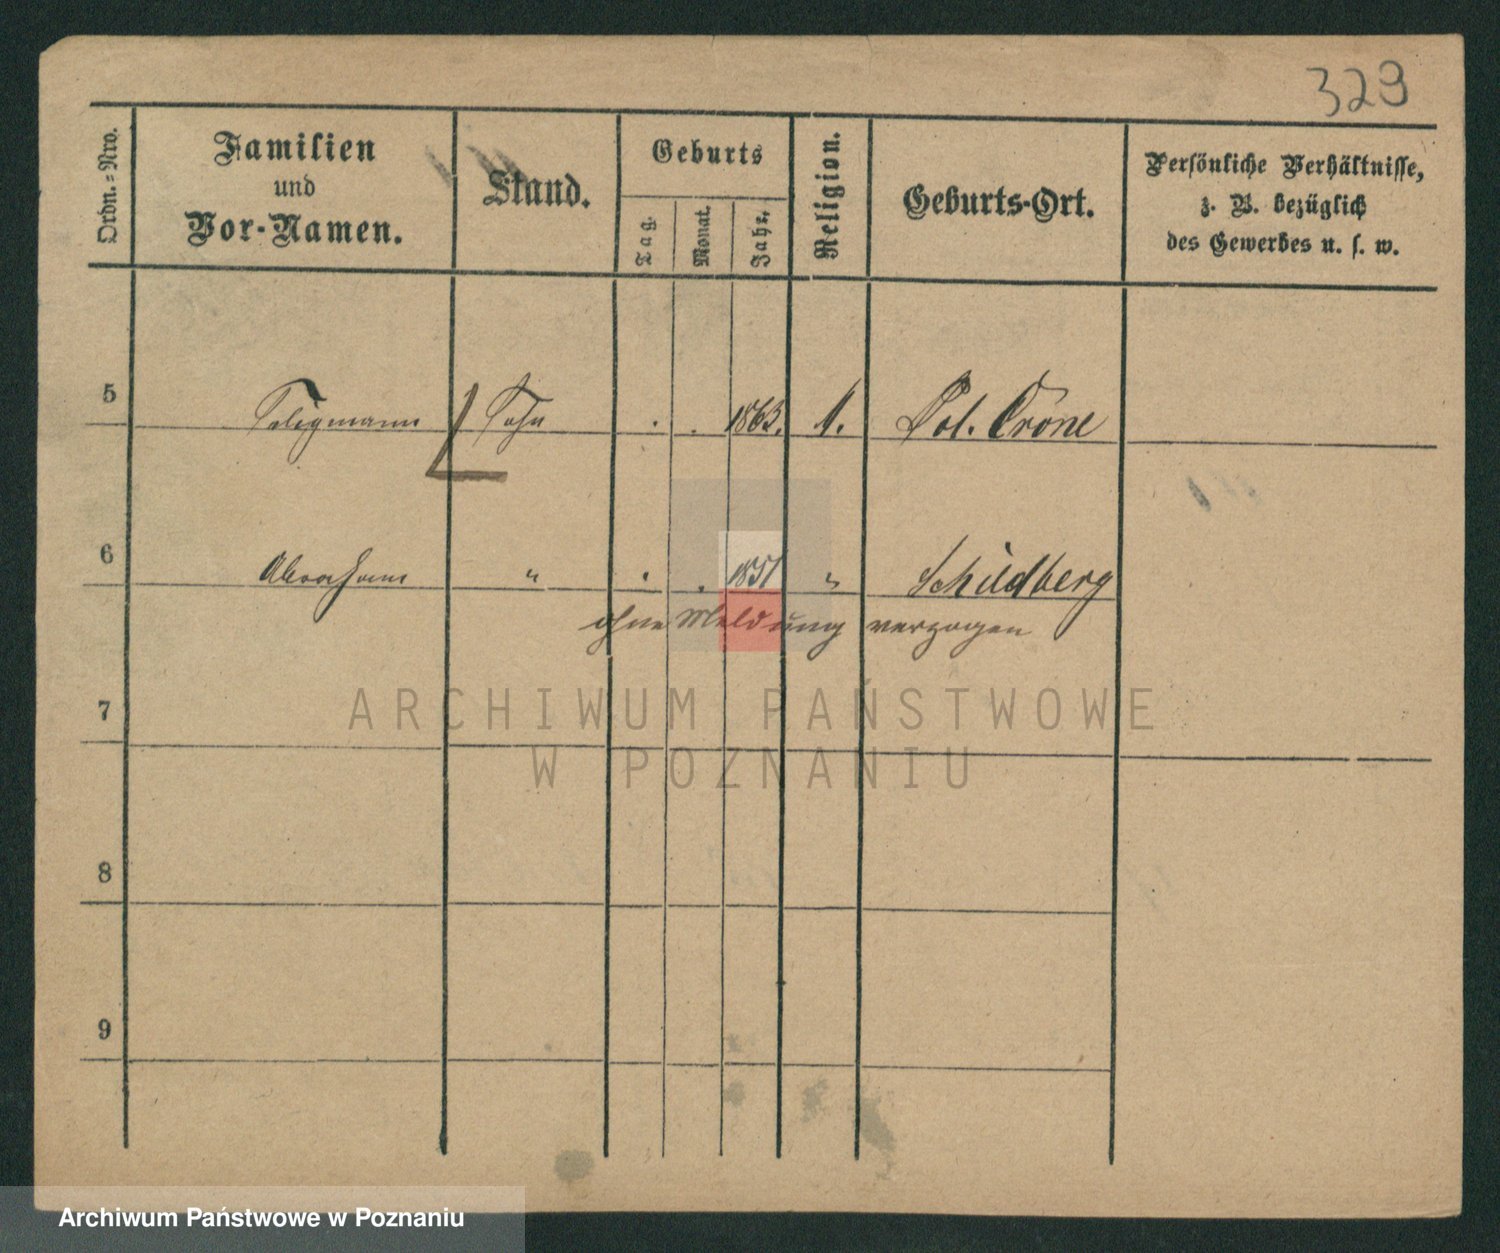 329
Ordn.=Nro.
Familien
und
Vor-Namen.
Stand.
Geburts
Tag.
Monat.
Jahr.
Religion.
Geburts-Ort.
Persönliche Verhältnisse,
z. B. bezüglich
des Gewerbes u. s. w.
5 Seligmann Sohn . . 1863. Pol. Crone
6 Abraham " . . 1857 " Schildberg
ohne Meldung verzogen
7
ARCHIWUM PAŃSTWOWE
W POZNANIU
8
9
Archiwum Państwowe w Poznaniu